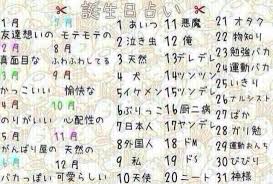 誕生日占い
1月 7月
友達想いの モテモテの
2月 8月
真面目な ふわふわしてる
3月 9月
かっこいい 愉快な
4月 10月
のりがいい 心配性の
5月 11月
がんばり屋の 天然の
6月 12月
バカっぽい 可愛らしい
1 あいつ
2 泣き虫
3 天然
4 犬
5 イケメン
6 ぶりっこ
7 日本人
8 外国人
9 私
10 天使
11 悪魔
12 俺
13 デレデレ
14 ツンツン
15 ツンデレ
16 厨二病
17 ヤンデレ
18 ドM
19 ドS
20 ニート
21 オタク
22 物知り
23 勉強バカ
24 運動バカ
25 いきもの
26 ナルシスト
27 ばばぁ
28 バカ
29 運動オンチ
30 びびり
31 神様